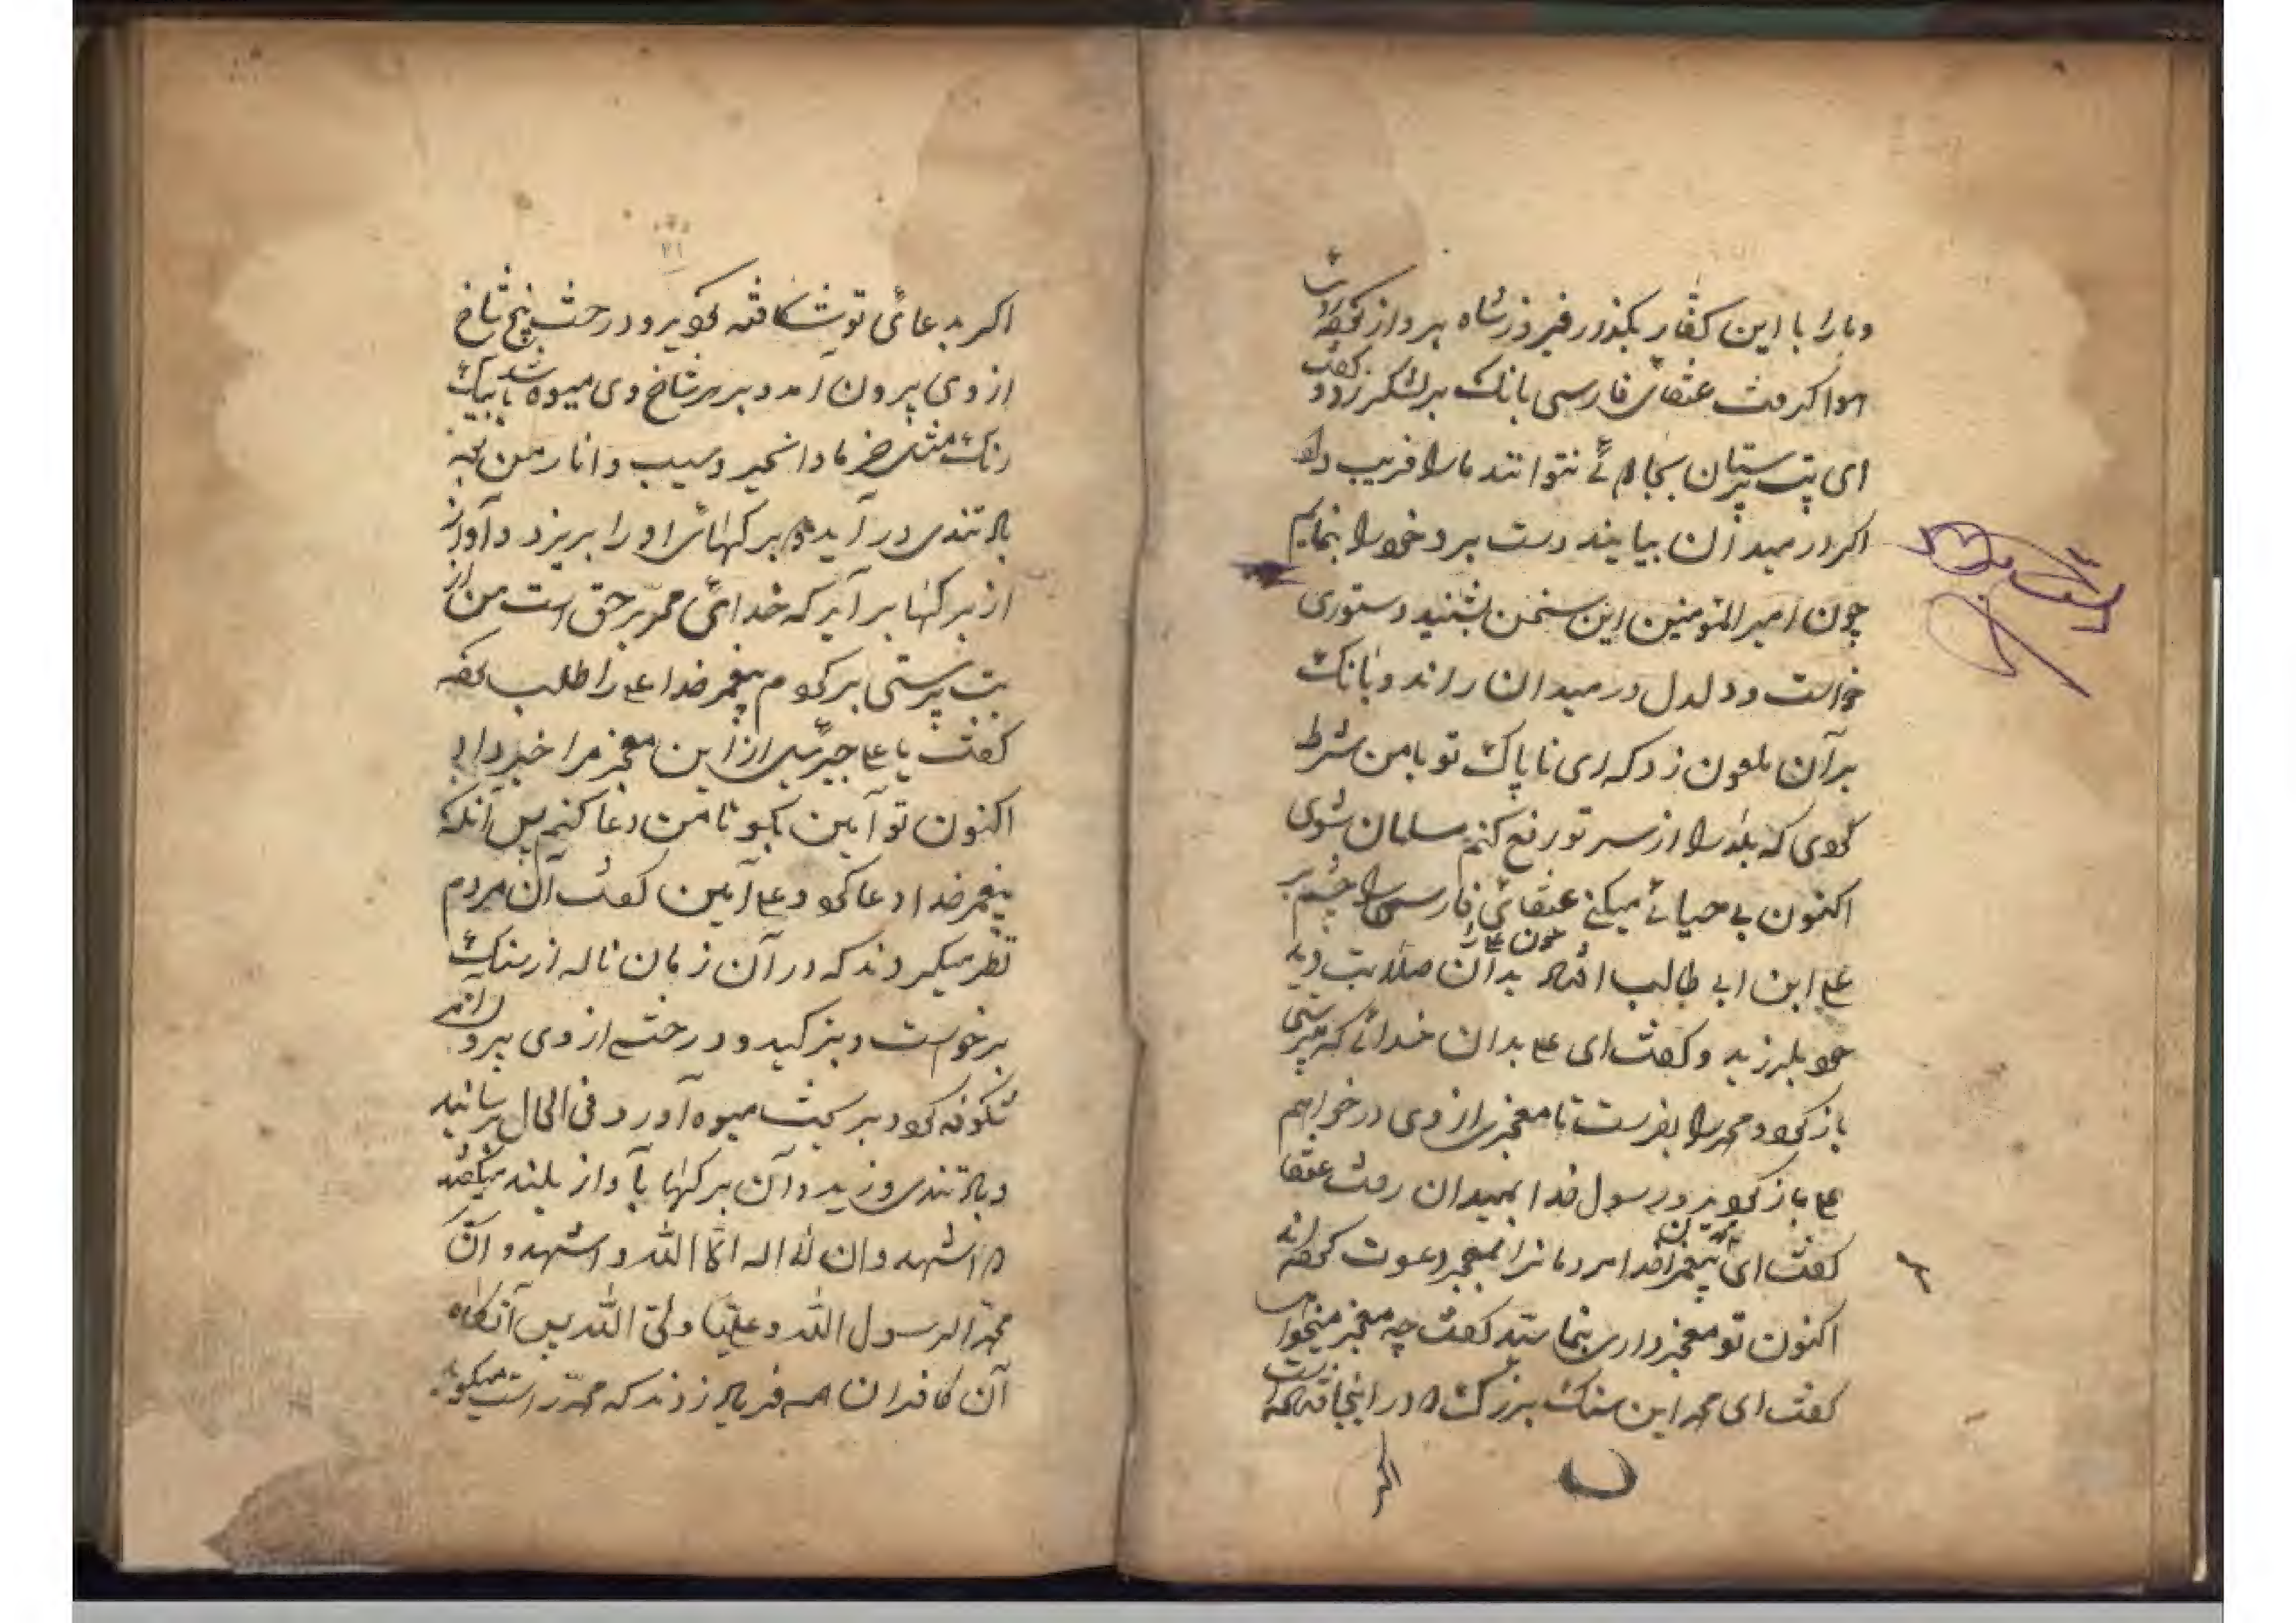 و ما را با این کفار بگذار فیروز شاه پرواز کرد راست
هوا گرفت عنقای فارسی بانک بر لشکر زد و گفت
ای بت پرستان بجادوئی نتوانند ما را فریب داد
اکر در میدان بیایند دست برد خود را بنمایم
چون امیر المؤمنین این سخن بشنید دستوری
خواست و دلدل در میدان راند و بانک
بر آن ملعون زد که ای ناپاک تو با من شرط
کردی که بلا را از سر تو رفع کنم مسلمان شوی
اکنون بی حیائی میکنی عنقائی فارسی را چشم بر
علی ابن ابی طالب افتاد بدان صلابت دید چون
خود بلرزید و کفت ای علی بدان خدائی که پرستی
باز کرد و محمد را بفرست تا معجزی از وی در خواهم
علی باز کردید و رسول خدا بمیدان رفت عنقا
کفت ای پیغمبر خدا مردمانرا بمعجز دعوت کرده اند
اکنون تو معجز داری بنمائید کفت چه معجز میخواهی
کفت ای محمد این سنک بزرک در اینجا افتاده است
اکر
اکر بدعائی تو شکافته کردد و درخت پنج شاخ
از وی بیرون آمد و بر هر شاخ وی میوه باشد
رنک مثل خرما و انجیر و سیب و انار
باد تندی در آید و برکهائی او را بریزد و آواز
از برکها بر آید که خدائی محمد بر حق است من از
بت پرستی بر کردم پیغمبر خدا علی را طلب کرد
کفت یا علی جبرئیل از این معجز مرا خبر داد
اکنون تو آمین بکو تا من دعا کنم پس آنکه
پیغمبر خدا دعا کرد و علی آمین کفت آن مردم
نظر میکردند که در آن زمان ناله از سنک
برخواست و بترکید و درختی از وی بیرون آمد
شکوفه کرد و میوه آورد و فی الحال برسانید
و باد تندی وزید و آن برکها بآواز بلند میکفتند
اشهد و ان لا اله الا الله و اشهد و ان
محمد الرسول الله و علیا ولی الله پس آنکاه
آن کافران همه فریاد زدند که محمد راست میکوید